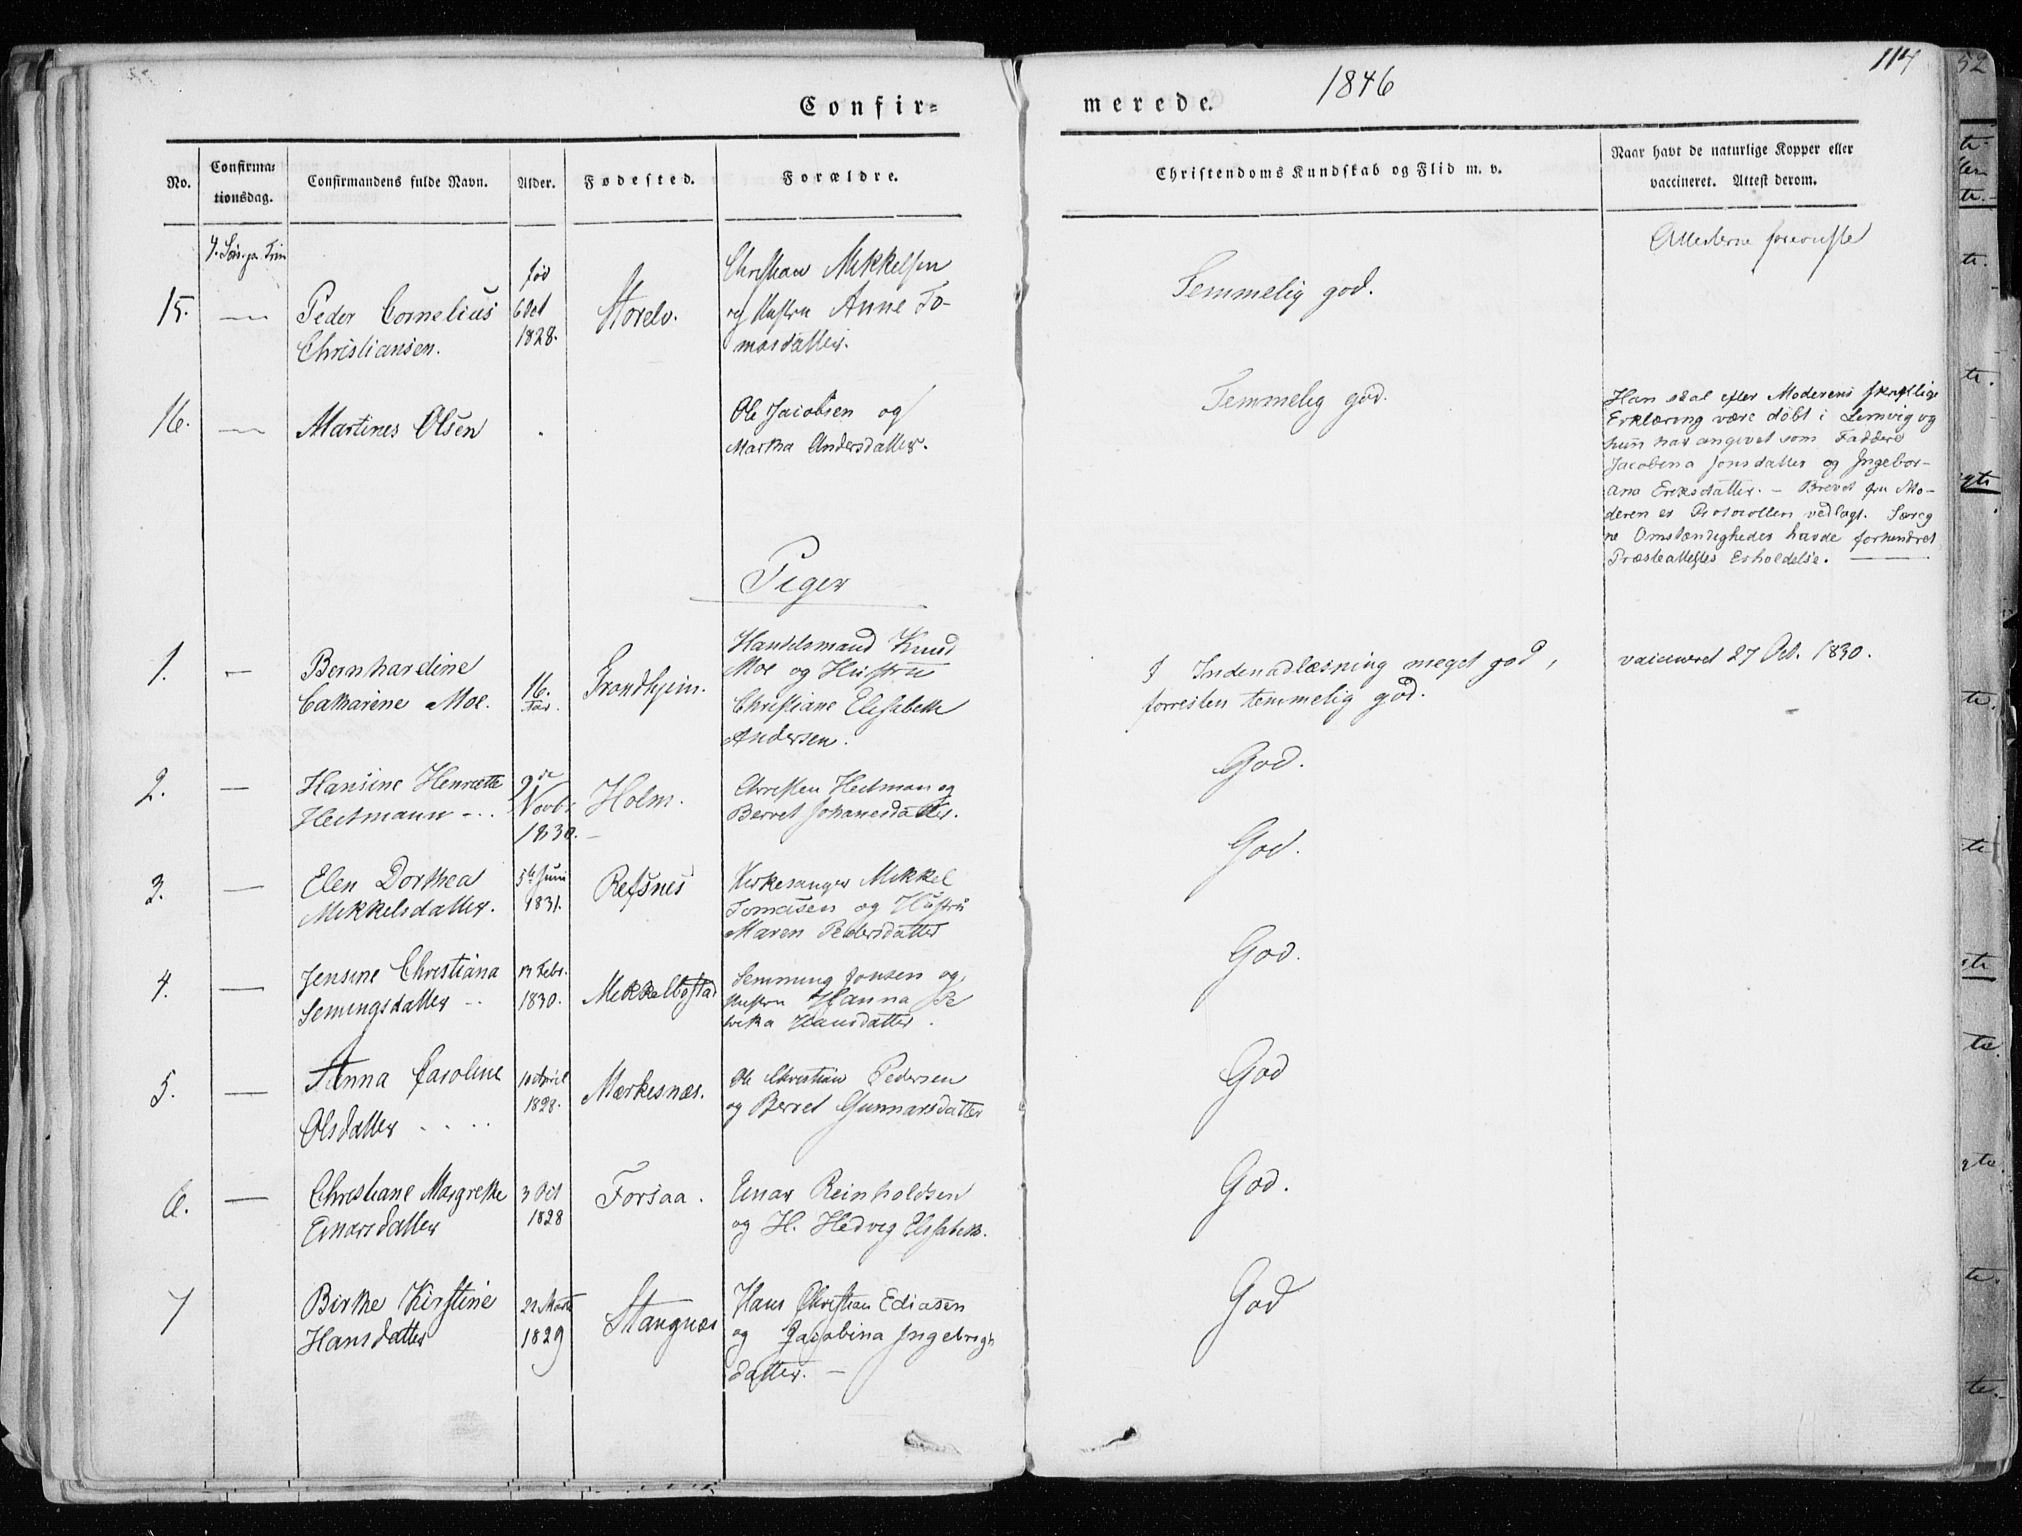 Confir=
merede.
1846
114
52
No.
Confirma=
tionsdag.
Confirmandens fulde Navn.
Alder.
Fødested.
Forældre.
Christendoms Kundskab og Flid m. v.
Naar havt de naturlige Kopper eller
vaccineret. Attest derom.
Attesterne foreviiste
15.
Peder Cornelius
Christiansen.
fød
6 Oct
1828.
Storelv.
Christian Mikkelsen
og Hustru Anne To-
masdatter.
Temmelig god.
16.
Martines Olsen
Ole Jacobsen og
Martha Andersdatter.
Temmelig god.
Han skal efter Moderens skriftlige
Erklæring være døbt i Lemvig og
hun har angivet som Faddere
Jacobina Jonsdatter og Ingebor-
ana Eriksdatter. - Brevet fra Mo-
deren er Protocollen vedlagt. Særeg
ne Omstændigheder havde forhindret
Præsteattestes Erholdelse.
Piger
1.
Bernhardine
Catharine Moe.
16.
Aar.
Trondhjem.
Handelsmand Knud
Moe og Hustru
Christiane Elisabeth
Andersen.
I Indenadlæsning meget god,
forresten temmelig god.
vaccineret 27 Oct. 1830.
2.
Hansine Henriette
Heitmann
9de
Novbr
1830.
Holm.
Christen Heitman og
Berret Johanesdatter.
God.
3.
Elen Dorthea
Mikkelsdatter.
5te Juni
1831.
Refsnes
Kirkesanger Mikkel
Tomasen og Hustru
Maren Pedersdatter
God.
4.
Jensine Christiana
Semingsdatter
13 Febr.
1830.
Mikkelbostad
Semming Jonsen og
Hustru Hanna Re
beka Hansdatter.
God.
5.
Anna Caroline
Olsdatter
10 April
1828.
Mærkesnæs.
Ole Christian Pedersen
og Berret Gunnarsdatter
God
6.
Christiane Margrethe
Einarsdatter
3 Oct
1828
Forsaa.
Einar Reinholdsen
og H. Hedvig Elisabeth.
God.
7
Birthe Kirstine
Hansdatter
22 Marts
1829
Stangnæs
Hans Christian Ediasen
og Jacobina Ingebrigts
datter.
God